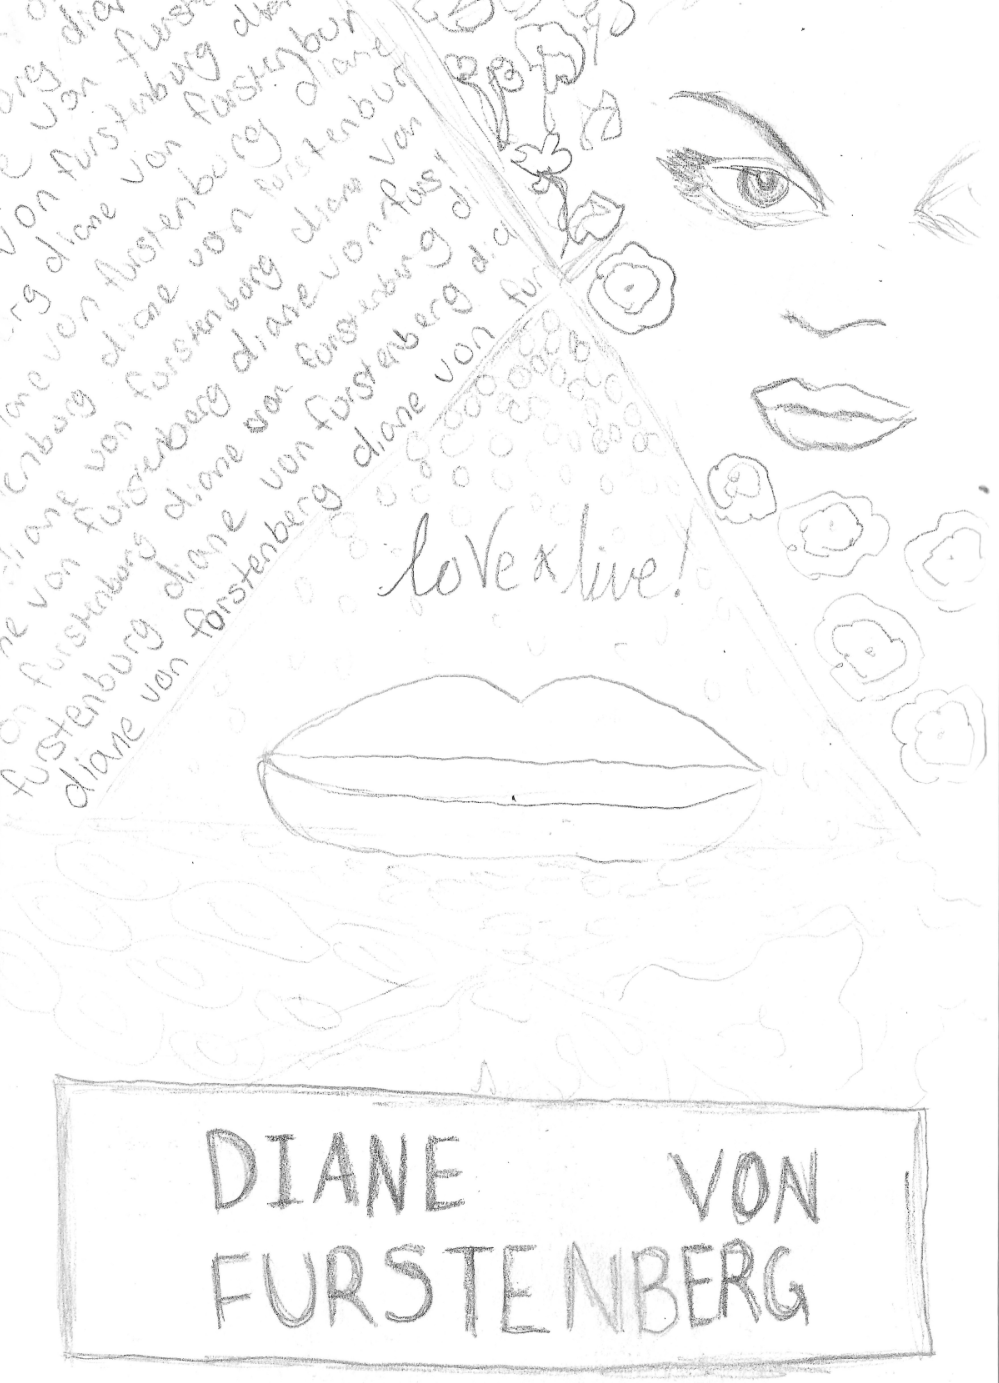 org dian
e von furst
von furstenburg die
urg diane von furstenbur
iane von furstenburg diane
enburg diane von furstenbur
diane von furstenburg diane von
ne von furstenberg diane von furs
on furstenburg diane von furstenburg d
furstenburg diane von furstenberg dia
diane von forstenberg diane von fur
love & live!
DIANE VON
FURSTENBERG